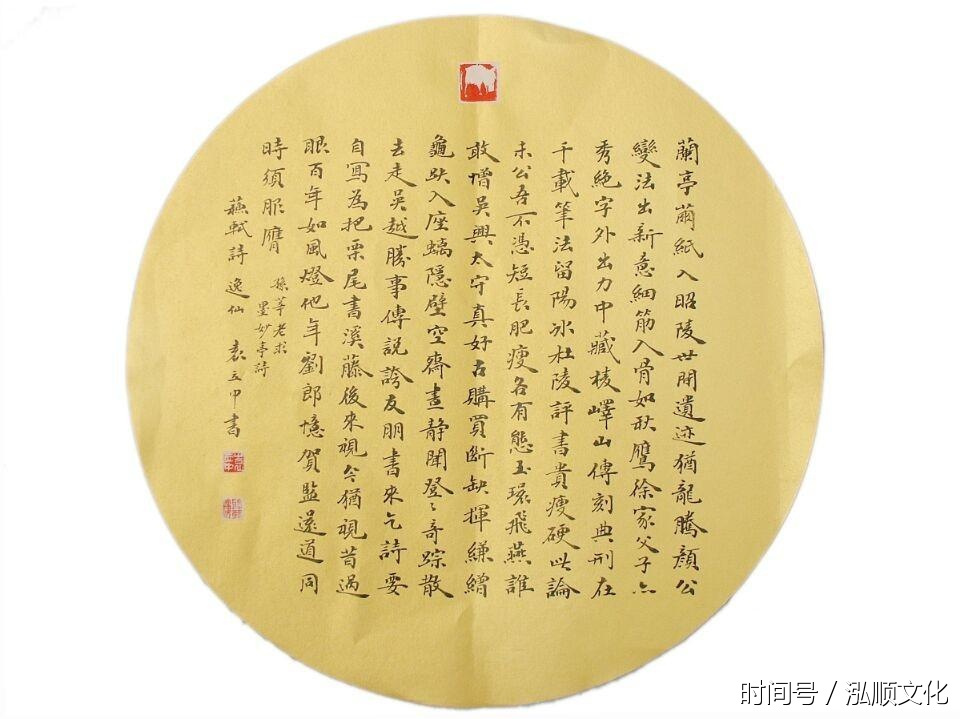 蘭亭繭紙入昭陵世間遺迹猶龍騰顏公
變法出新意細筋入骨如秋鷹徐家父子亦
秀絕字外出力中藏棱嶧山傳刻典刑在
千載筆法留陽冰杜陵評書貴瘦硬此論
未公吾不憑短長肥瘦各有態玉環飛燕誰
敢憎吳興太守真好古購買斷缺揮縑繒
龜趺入座螭隱壁空齋晝靜聞登〻奇踪散
去走吳越勝事傳說誇友朋書來乞詩要
自寫為把栗尾書溪藤後來視今猶視昔過
眼百年如風燈他年劉郎憶賀監還道同
時須服膺
孫莘老求
墨妙亭詩
蘇軾詩 逸仙 袁立中書
时间号 / 泓顺文化